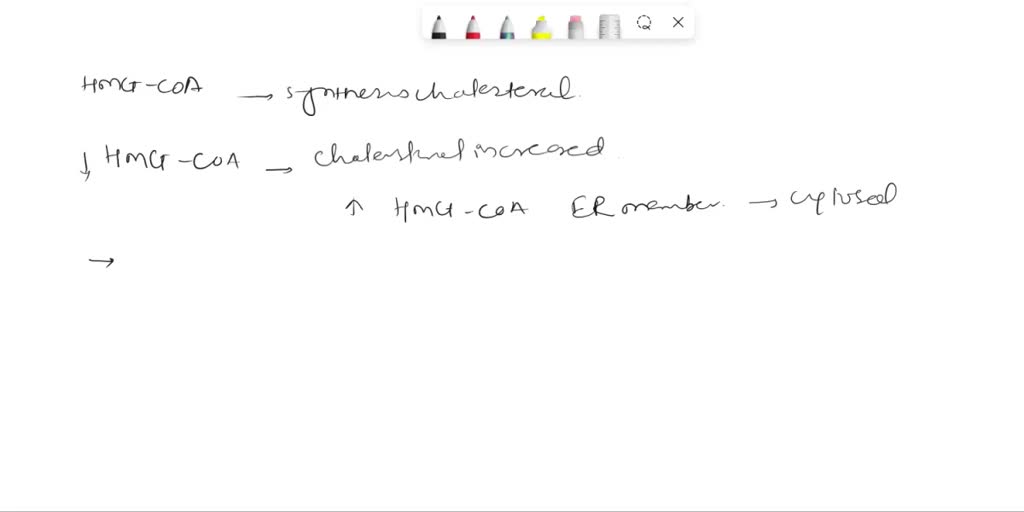 HMG-COA → synthesis cholesterol.
↓ HMG-COA → Cholesterol increased
↑ HMG-COA ER member. → cytosol
→